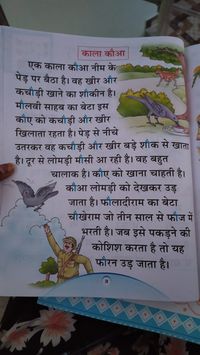 काला कौआ
एक काला कौआ नीम के
पेड़ पर बैठा है। वह खीर और
कचौड़ी खाने का शौकीन है।
मौलवी साहब का बेटा इस
कौए को कचौड़ी और खीर
खिलाता रहता है। पेड़ से नीचे
उतरकर वह कचौड़ी और खीर बड़े शौक से खाता
है। दूर से लोमड़ी मौसी आ रही है। वह बहुत
चालाक है। कौए को खाना चाहती है।
कौआ लोमड़ी को देखकर उड़
जाता है। फौलादीराम का बेटा
चौखेराम जो तीन साल से फौज में
भरती है। जब इसे पकड़ने की
कोशिश करता है तो यह
फौरन उड़ जाता है।